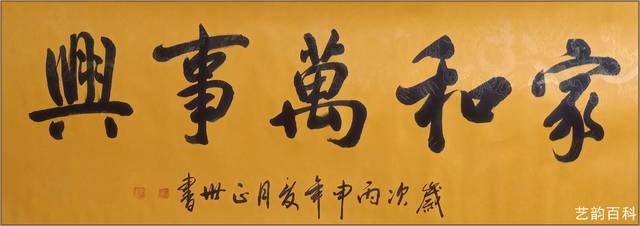 家和萬事興
歲次丙申年夏月正世書
艺韵百科